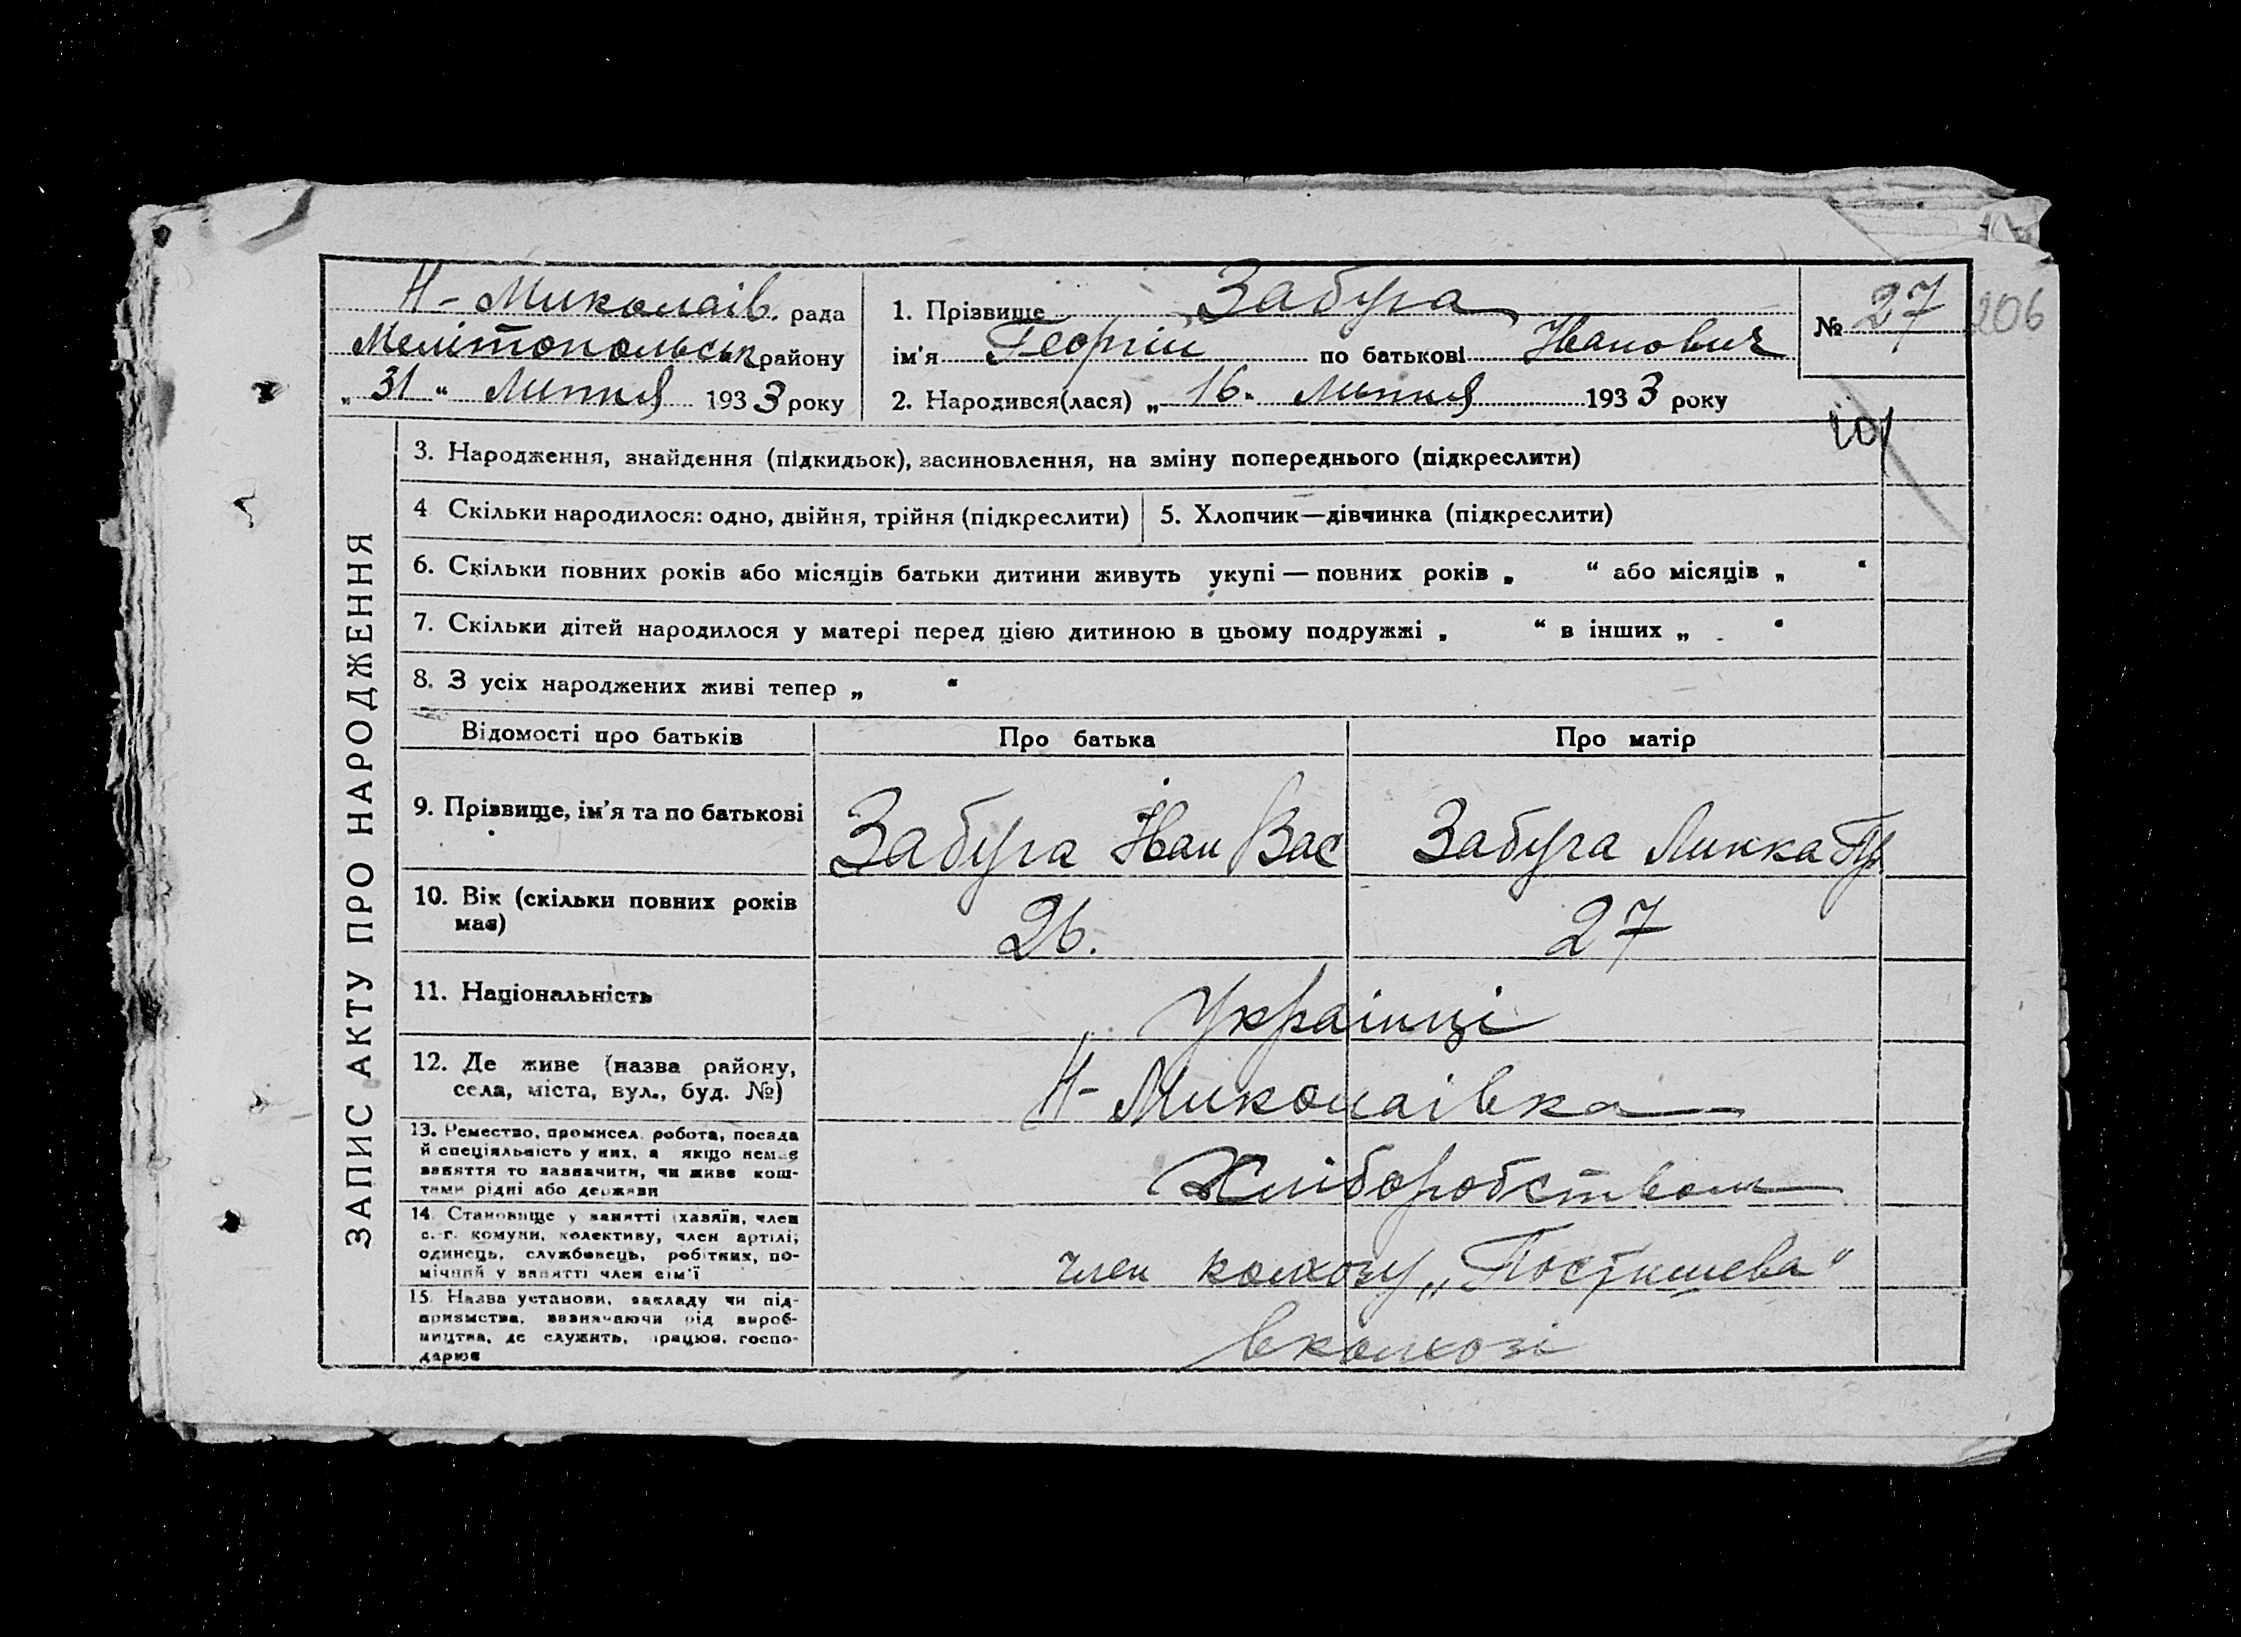 Н-Миколаів. рада
Мелітопольськ району
„ 31 “ Липня 1933 року
1. Прізвище Забуга
ім'я Георгій по батькові Іванович
2. Народився(лася) „ 16 “ Липня 1933 року
№ 27
206
101
ЗАПИС АКТУ ПРО НАРОДЖЕННЯ
3. Народження, знайдення (підкидьок), засиновлення, на зміну попереднього (підкреслити)
4 Скільки народилося: одно, двійня, трійня (підкреслити)
5. Хлопчик—дівчинка (підкреслити)
6. Скільки повних років або місяців батьки дитини живуть укупі — повних років „ “ або місяців „ “
7. Скільки дітей народилося у матері перед цією дитиною в цьому подружжі „ “ в інших „ “
8. З усіх народжених живі тепер „ “
Відомості про батьків Про батька Про матір
9. Прізвище, ім'я та по батькові Забуга Іван Вас Забуга Ликка Пр
10. Вік (скільки повних років
має) 26. 27
11. Національність Украінці
12. Де живе (назва району,
села, міста, вул., буд. №) Н-Миколаівка
13. Ремество, промисел, робота, посада
й спеціяльність у них, а якщо немає
заняття то зазначити, чи живе кош-
тами рідні або держави Хліборобством
14. Становище у занятті (хазяїн, член
с.-г. комуни, колективу, член артілі,
одинець, службовець, робітник, по-
мічний у занятті член сім'ї член колхозу „Постишева“
15. Назва установи, закладу чи під-
приємства, зазначаючи рід вироб-
ництва, де служить, працює, госпо-
дарює в колхозі